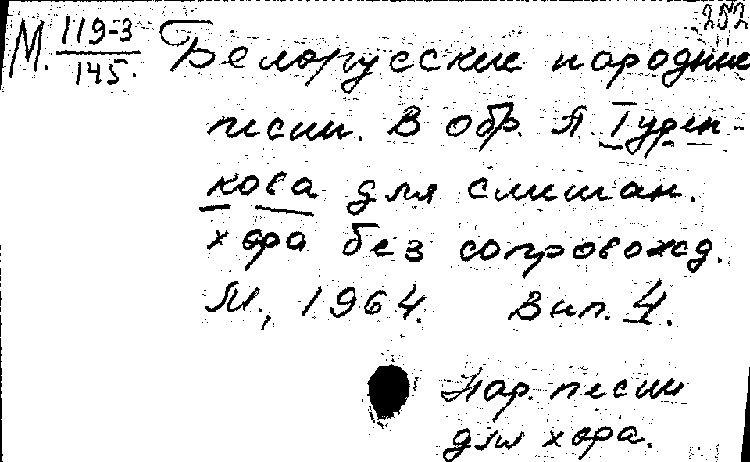 252
М. 119-3/145. Белорусские народные
песни. В обр. А. Турен-
кова для смешан.
хора без сопровожд.
М., 1964. Вып. 4.
Нар. песни
для хора.